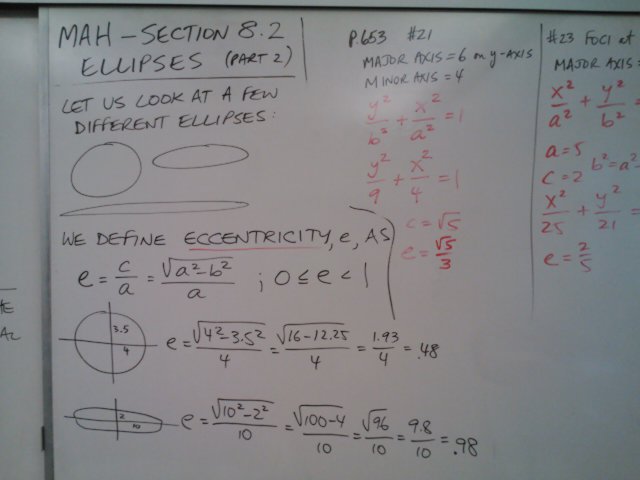 MAH – SECTION 8.2
ELLIPSES (PART 2)
LET US LOOK AT A FEW
DIFFERENT ELLIPSES:
WE DEFINE ECCENTRICITY, e, AS
e = c/a = √(a²-b²)/a ; 0 ≤ e < 1
3.5
4
e = √(4²-3.5²)/4 = √(16-12.25)/4 = 1.93/4 = .48
2
10
e = √(10²-2²)/10 = √(100-4)/10 = √96/10 = 9.8/10 = .98
P.653 #21
MAJOR AXIS = 6 on y-AXIS
MINOR AXIS = 4
y²/b² + x²/a² = 1
y²/9 + x²/4 = 1
c = √5
e = √5/3
#23 FOCI at
MAJOR AXIS =
x²/a² + y²/b² =
a = 5
c = 2 b² = a² -
x²/25 + y²/21 =
e = 2/5